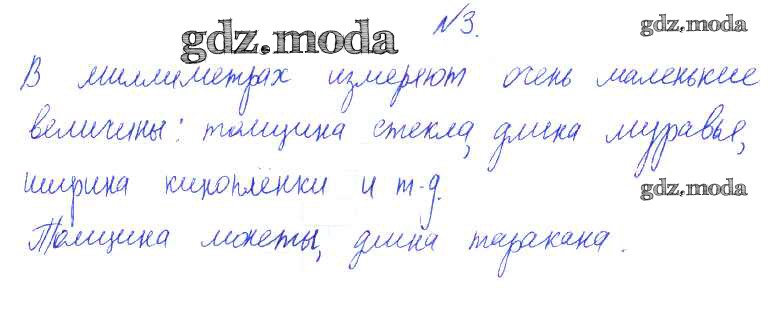 №3.
gdz.moda
gdz.moda
В миллиметрах измеряют очень маленькие
величины: толщина стекла, длина муравья,
ширина киноплёнки и т.д.
gdz.moda
Толщина монеты, длина таракана.